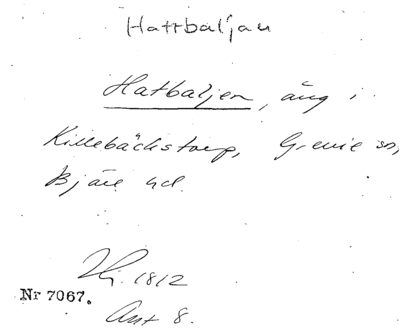 Hattbaljan
Hatbaljen, äng i
Killebäckstorp, Grevie sn,
Bjäre hd.
1812
Nr 7067.
Akt 8.